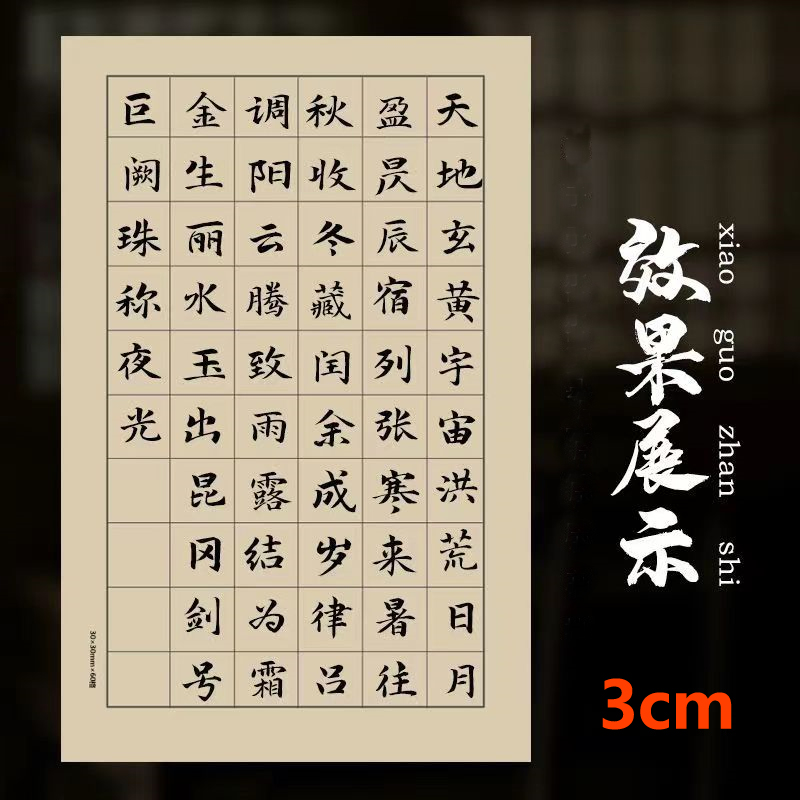 天地玄黄宇宙洪荒日月
盈昃辰宿列张寒来暑往
秋收冬藏闰余成岁律吕
调阳云腾致雨露结为霜
金生丽水玉出昆冈剑号
巨阙珠称夜光
30×30mm×60格
效果展示
xiao guo zhan shi
3cm